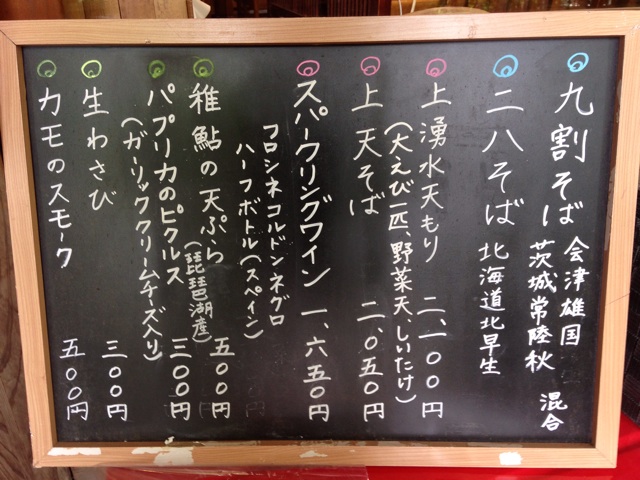 九割そば 会津雄国
茨城常陸秋そば 混合
二八そば 北海道北早生
上湧水天もり 二、一〇〇円
(大えび一匹、野菜天、しいたけ)
上天そば 二、〇五〇円
スパークリングワイン 一、六五〇円
フロシネコルドンネグロ
ハーフボトル(スペイン)
稚鮎の天ぷら(琵琶湖産) 五〇〇円
パプリカのピクルス 三〇〇円
(ガーリッククリームチーズ入り)
生わさび 三〇〇円
カモのスモーク 五〇〇円